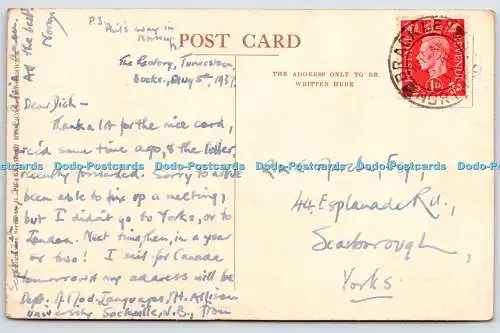 P.S.
Phil's away in
Norway
POST CARD
The Rectory, Turweston,
Bucks., Aug 5th, 1937.
THE ADDRESS ONLY TO BE
WRITTEN HERE
Dear Dick –
Thanks a lot for the nice card,
rec'd some time ago, & the letter,
recently forwarded. Sorry to have
been able to fix up a meeting,
but I didn't go to Yorks, or to
London. Next time, then, in a year
or two! I sail for Canada
tomorrow & my address will be
Dept. of Mod. Languages, Mt. Allison
University, Sackville, N.B., from
September
All the best
Norman
Esq.,
44, Esplanade Rd.,
Scarborough,
Yorks.
BRACKLEY
1D
Dodo-Postcards Dodo-Postcards Dodo-Postcards Dodo-Postcards Dodo-Postcards Dodo-Postcards